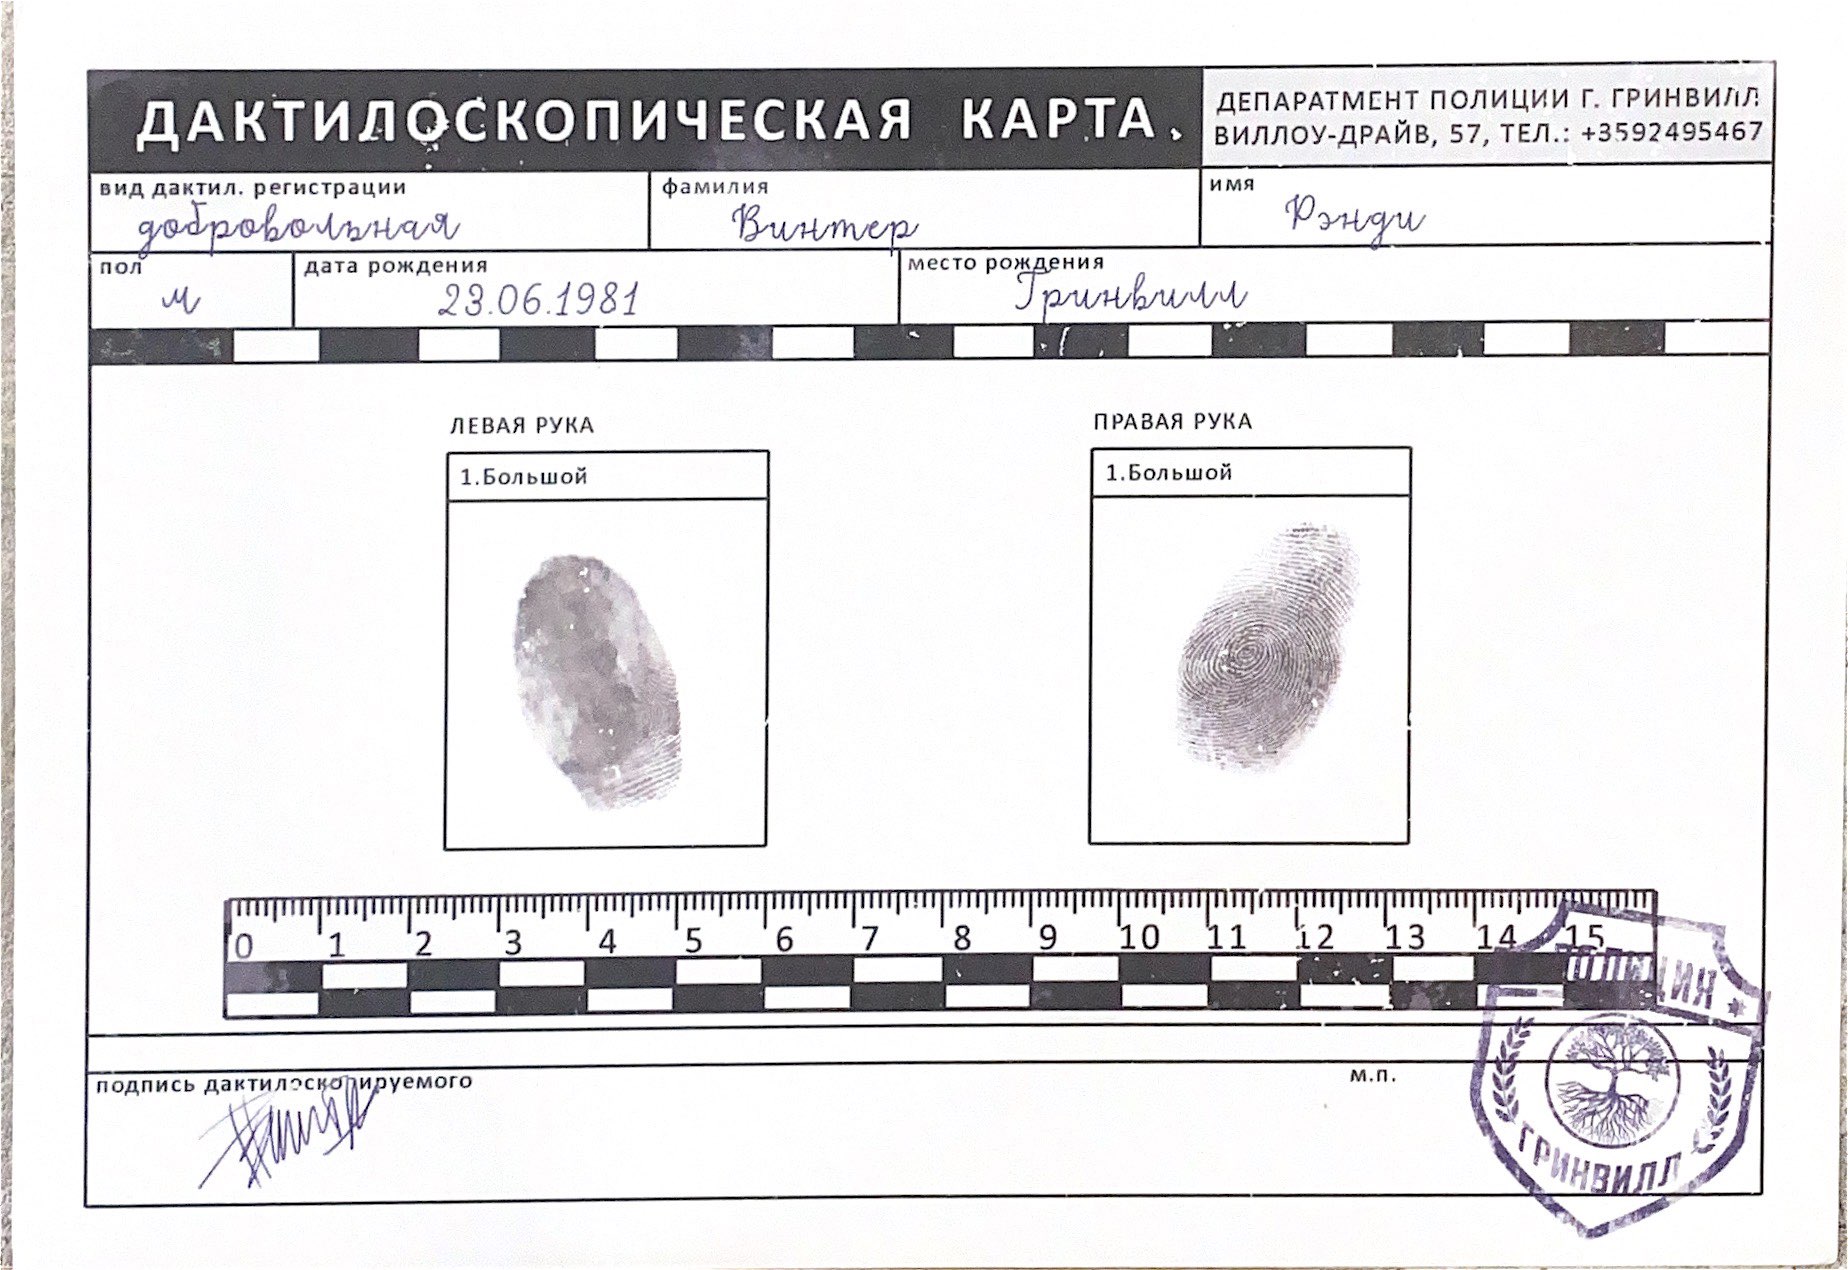 ДАКТИЛОСКОПИЧЕСКАЯ КАРТА.
ДЕПАРАТМЕНТ ПОЛИЦИИ Г. ГРИНВИЛЛ
ВИЛЛОУ-ДРАЙВ, 57, ТЕЛ.: +3592495467
вид дактил. регистрации
добровольная
фамилия
Винтер
имя
Рэнди
пол
м
дата рождения
23.06.1981
место рождения
Гринвилл
ЛЕВАЯ РУКА
1.Большой
ПРАВАЯ РУКА
1.Большой
0 1 2 3 4 5 6 7 8 9 10 11 12 13 14 15
подпись дактилоскопируемого
м.п.
ПОЛИЦИЯ
ГРИНВИЛЛ